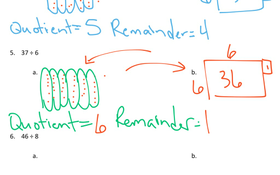 Quotient=5 Remainder=4
5. 37 ÷ 6
a.
b.
6
6
36
1
Quotient=6 Remainder=1
6. 46 ÷ 8
a.
b.